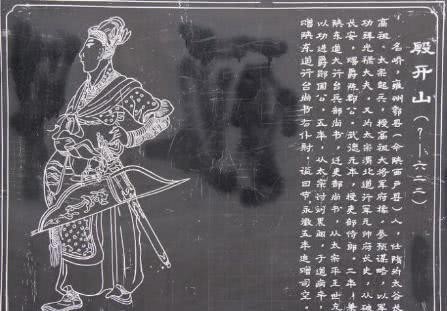 殷开山（？—六二二）
名峤，雍州鄠县（今陕西户县）人，仕隋为太谷长
高祖、太宗起兵，授高祖大将军府掾，参预谋略，以军
功拜光禄大夫，又为太宗渭北道行军元帅府长史，从破
长安，赐爵陈郡公。武德元年，授吏部侍郎，二年，兼
陕东道大行台兵部尚书，迁吏部尚书，从太宗平王世充
以功进爵郧国公。五年，从太宗讨刘黑闼，于道病卒，
赠陕东道行台尚书右仆射，谥曰节，永徽五年追赠司空。